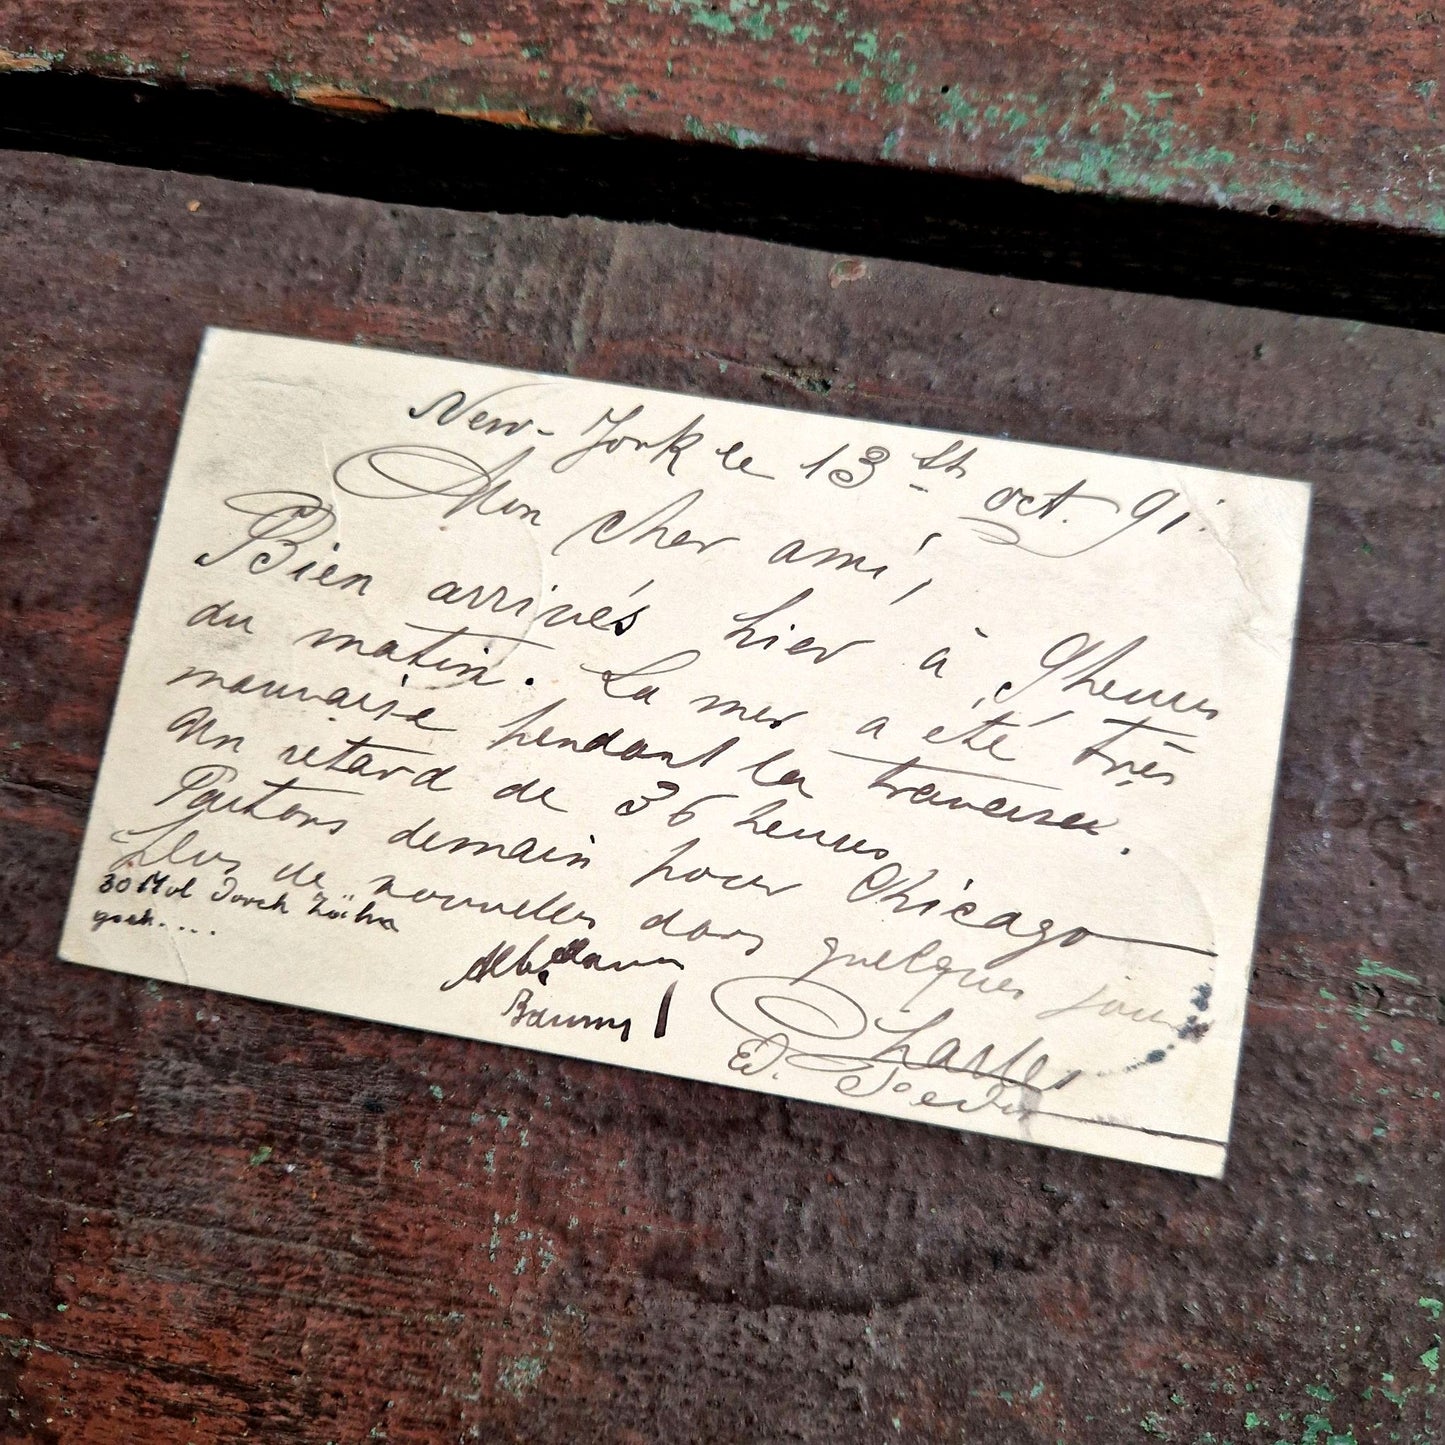 New-York le 13 th oct. 91.
Mon cher ami,
Bien arrivés hier à 9 heures
du matin. La mer a été très
mauvaise pendant la traversée.
un retard de 36 heures
Partons demain pour Chicago
plus de nouvelles dans quelques jours
Charles
Ed.
30 Mol